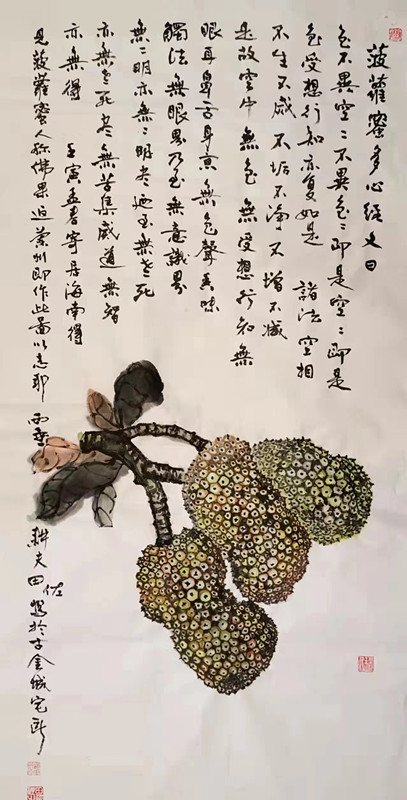 菠蘿蜜多心經文曰
色不異空二不異色二即是空二即是
色受想行知亦复如是 諸法空相
不生不滅 不垢不淨 不增不減
是故空中無色 無受想行知 無
眼耳鼻舌身意 無色聲香味
觸法 無眼界乃至無意識界
無二明亦無二明盡 乃至無老死
亦無老死盡 無苦集滅道 無智
亦無得 壬寅孟春寄居海南得
見菠蘿蜜人称佛果迫蘭州即作此圖以志耶
耕夫田佐寫於古金城宅